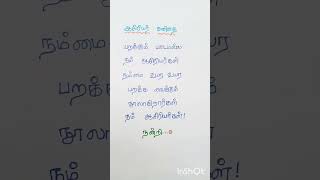 ஆசிரியர் கவிதை
பறக்கும் பட்டமல்ல
நம் ஆசிரியர்கள்
நம்மை உயர உயர
பறக்க வைக்கும்
நூலாகிறார்கள்
நம் ஆசிரியர்கள்!
நன்றி